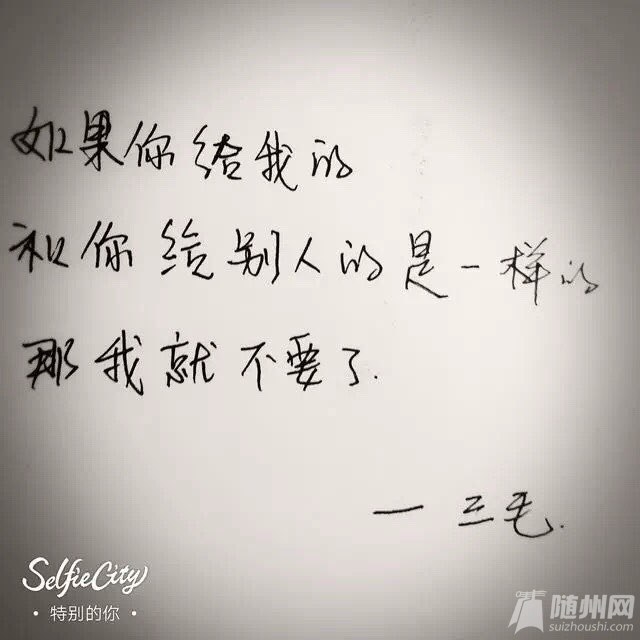 如果你给我的
和你给别人的是一样的
那我就不要了.
一 三毛.
SelfieCity
·特别的你·
随州网
suizhoushi.com